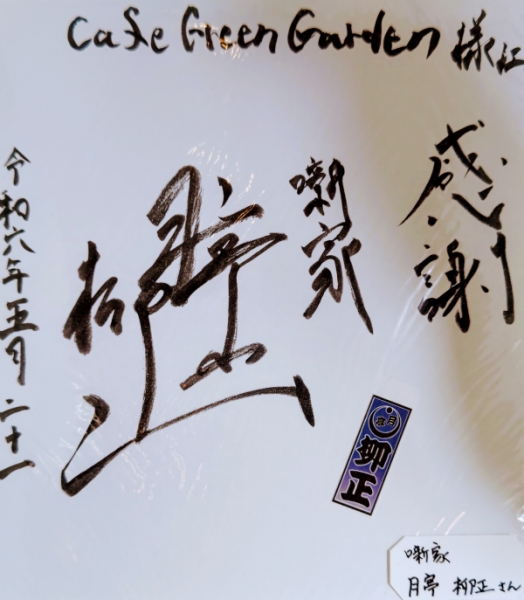 cafe Green Garden 様江
感謝
噺家
月亭
柳正
令和六年五月二十一
月亭
柳正
噺家
月亭 柳正さん